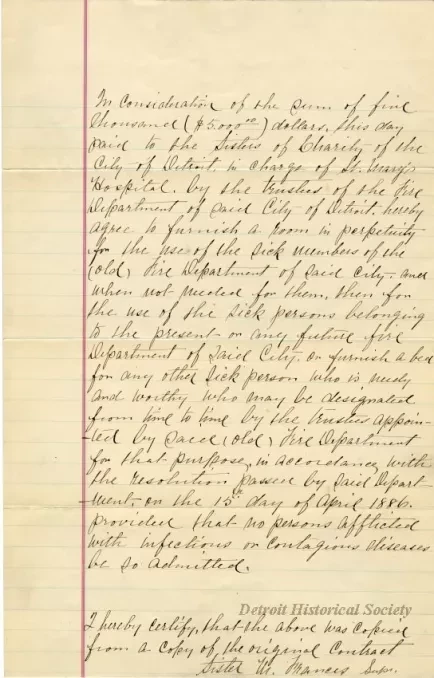 In consideration of the sum of five
thousand ($5.000.00) dollars, this day
paid to the Sisters of Charity of the
City of Detroit, in charge of St. Mary's
Hospital, by the trustees of the Fire
Department of said City of Detroit, hereby
agree to furnish a room in perpetuity
for the use of the sick members of the
(old) Fire Department of said City, and
when not needed for them, then for
the use of the sick persons belonging
to the present or any future fire
Department of said City, or furnish a bed
for any other sick person who is needy
and worthy who may be designated
from time to time by the trustees appoin-
ted by said (old) Fire Department
for that purpose, in accordance with
the resolution passed by said Depart
ment, on the 15th day of April 1886.
provided that no persons afflicted
with infections or contagious diseases
be so admitted.
Detroit Historical Society
I hereby certify, that the above was copied
from a copy of the original contract
Sister M. Frances Sup.